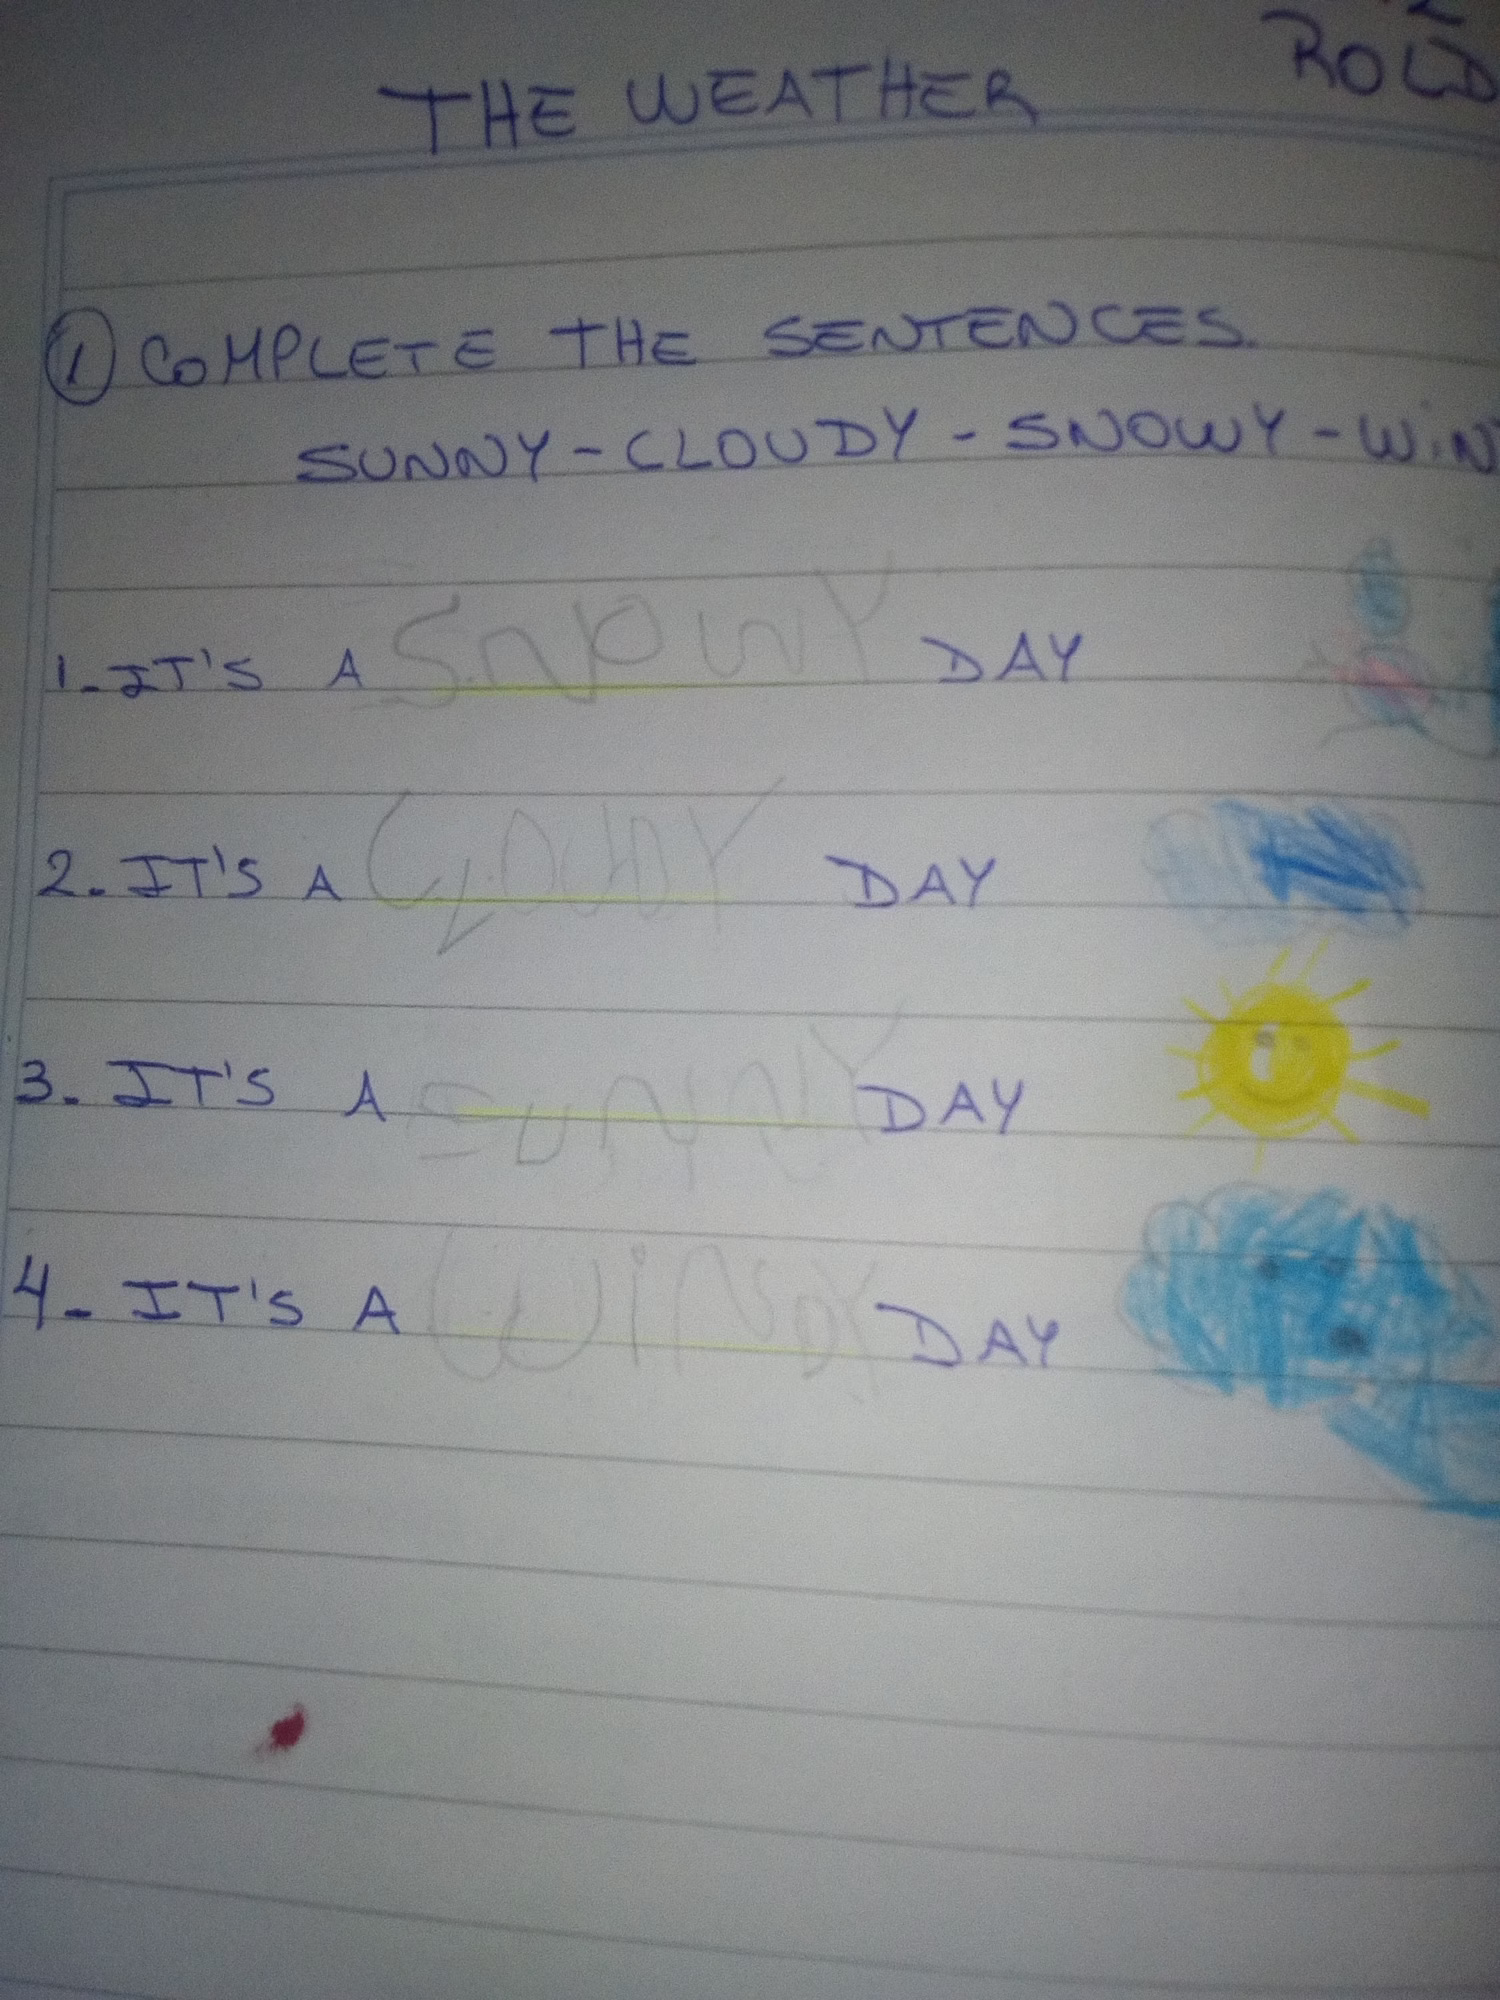 ROLD
THE WEATHER
1 COMPLETE THE SENTENCES.
SUNNY - CLOUDY - SNOWY - WIN
1. IT'S A SNOWY DAY
2. IT'S A CLOUDY DAY
3. IT'S A SUNNY DAY
4. IT'S A WINDY DAY